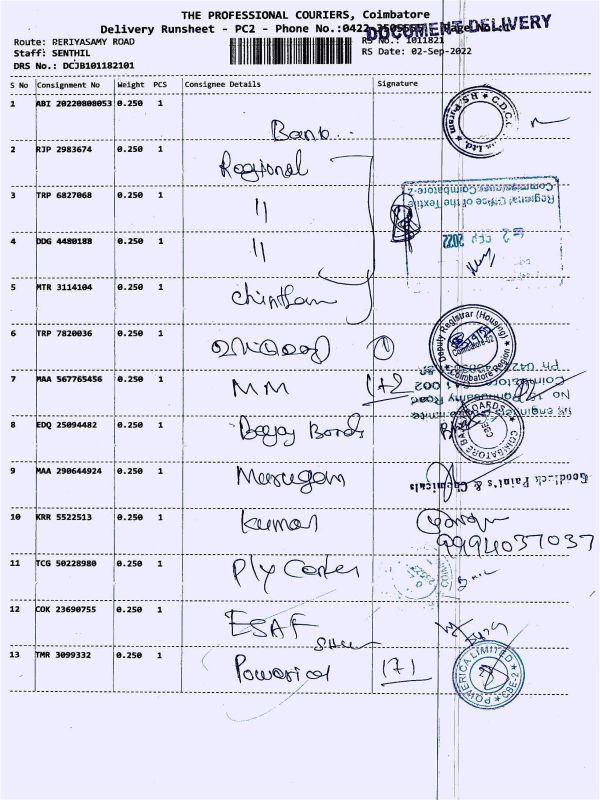 THE PROFESSIONAL COURIERS, Coimbatore
Delivery Runsheet - PC2 - Phone No.:0422
DOCUMENT DELIVERY
Route: RERIYASAMY ROAD
RS No.: 1011821
Staff: SENTHIL
RS Date: 02-Sep-2022
DRS No.: DCJB101182101
S No Consignment No Weight PCS Consignee Details Signature
1 ABI 20220808053 0.250 1 Bank
2 RJP 2983674 0.250 1 Regional
3 TRP 6827068 0.250 1 11
Regional Office of the Textile
Commissioner, Coimbatore-2
4 DDG 4480188 0.250 1 11
2 SEP 2022
5 MTR 3114104 0.250 1
6 TRP 7820036 0.250 1 1
Deputy Registrar (Housing)
Coimbatore Region
7 MAA 567765456 0.250 1 MM 1+2
8 EDQ 25094482 0.250 1 Bajaj Bonds
9 MAA 290644924 0.250 1 Murugan
Goodluck Paint's & Chemicals
10 KRR 5522513 0.250 1 Kumar
9994037037
11 TCG 50228980 0.250 1 Ply Center
12 COK 23690755 0.250 1 ESAF
13 TMR 3099332 0.250 1 Powerica 171
POWERICA LIMITED
CBE-2